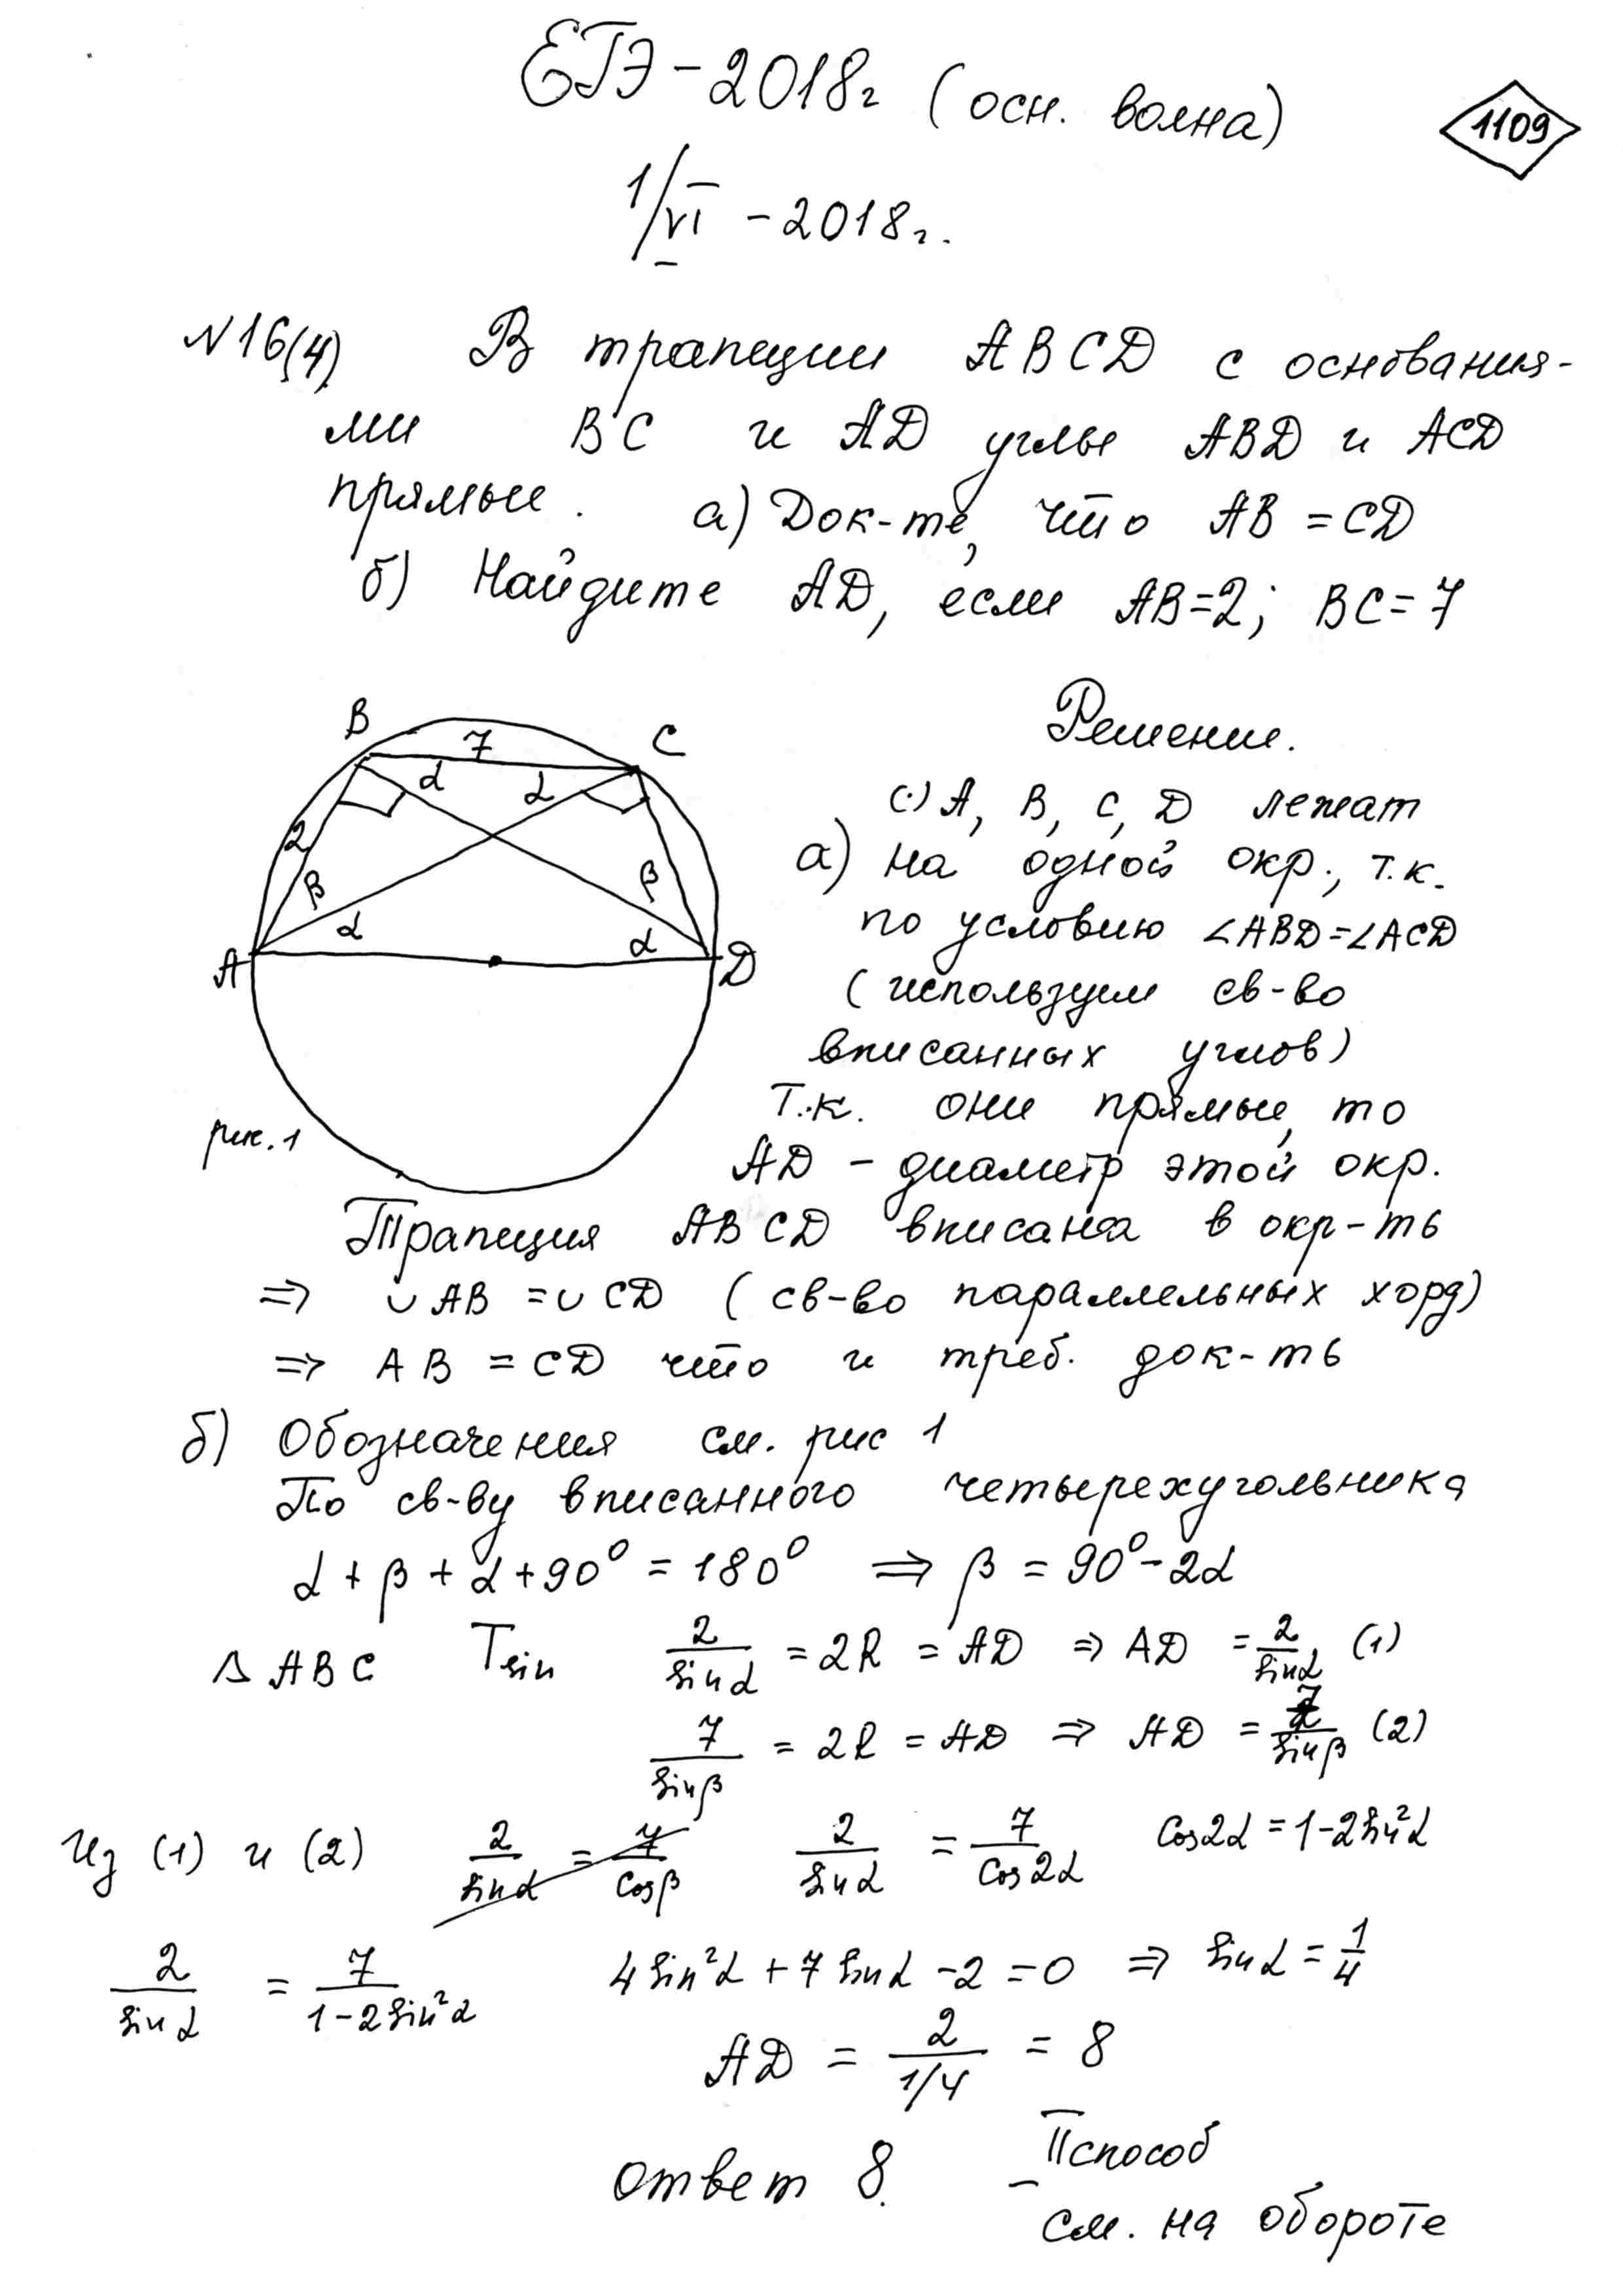 ЕГЭ-2018г (осн. волна)
1109
1/VI - 2018г.
№16(4) В трапеции ABCD с основания-
ми BC и AD углы ABD и ACD
прямые. а) Док-те, что AB = CD
б) Найдите AD, если AB=2; BC=7
B 7 C
α α
2
β β
α α
A D
рис. 1
Решение.
(·) A, B, C, D лежат
а) на одной окр., т.к.
по условию ∠ABD=∠ACD
(используем св-во
вписанных углов)
Т.к. они прямые, то
AD - диаметр этой окр.
Трапеция ABCD вписана в окр-ть
⇒ ∪AB = ∪CD (св-во параллельных хорд)
⇒ AB = CD что и треб. док-ть
б) Обозначения см. рис 1
По св-ву вписанного четырехугольника
α + β + α + 90° = 180° ⇒ β = 90° - 2α
△ABC Tsin 2/sinα = 2R = AD ⇒ AD = 2/sinα (1)
7/sinβ = 2R = AD ⇒ AD = 7/sinβ (2)
Из (1) и (2) 2/sinα = 7/cosβ 2/sinα = 7/cos2α cos2α = 1-2sin²α
2/sinα = 7/(1-2sin²α) 4sin²α + 7sinα - 2 = 0 ⇒ sinα = 1/4
AD = 2/(1/4) = 8
ответ 8.
II способ
см. на обороте